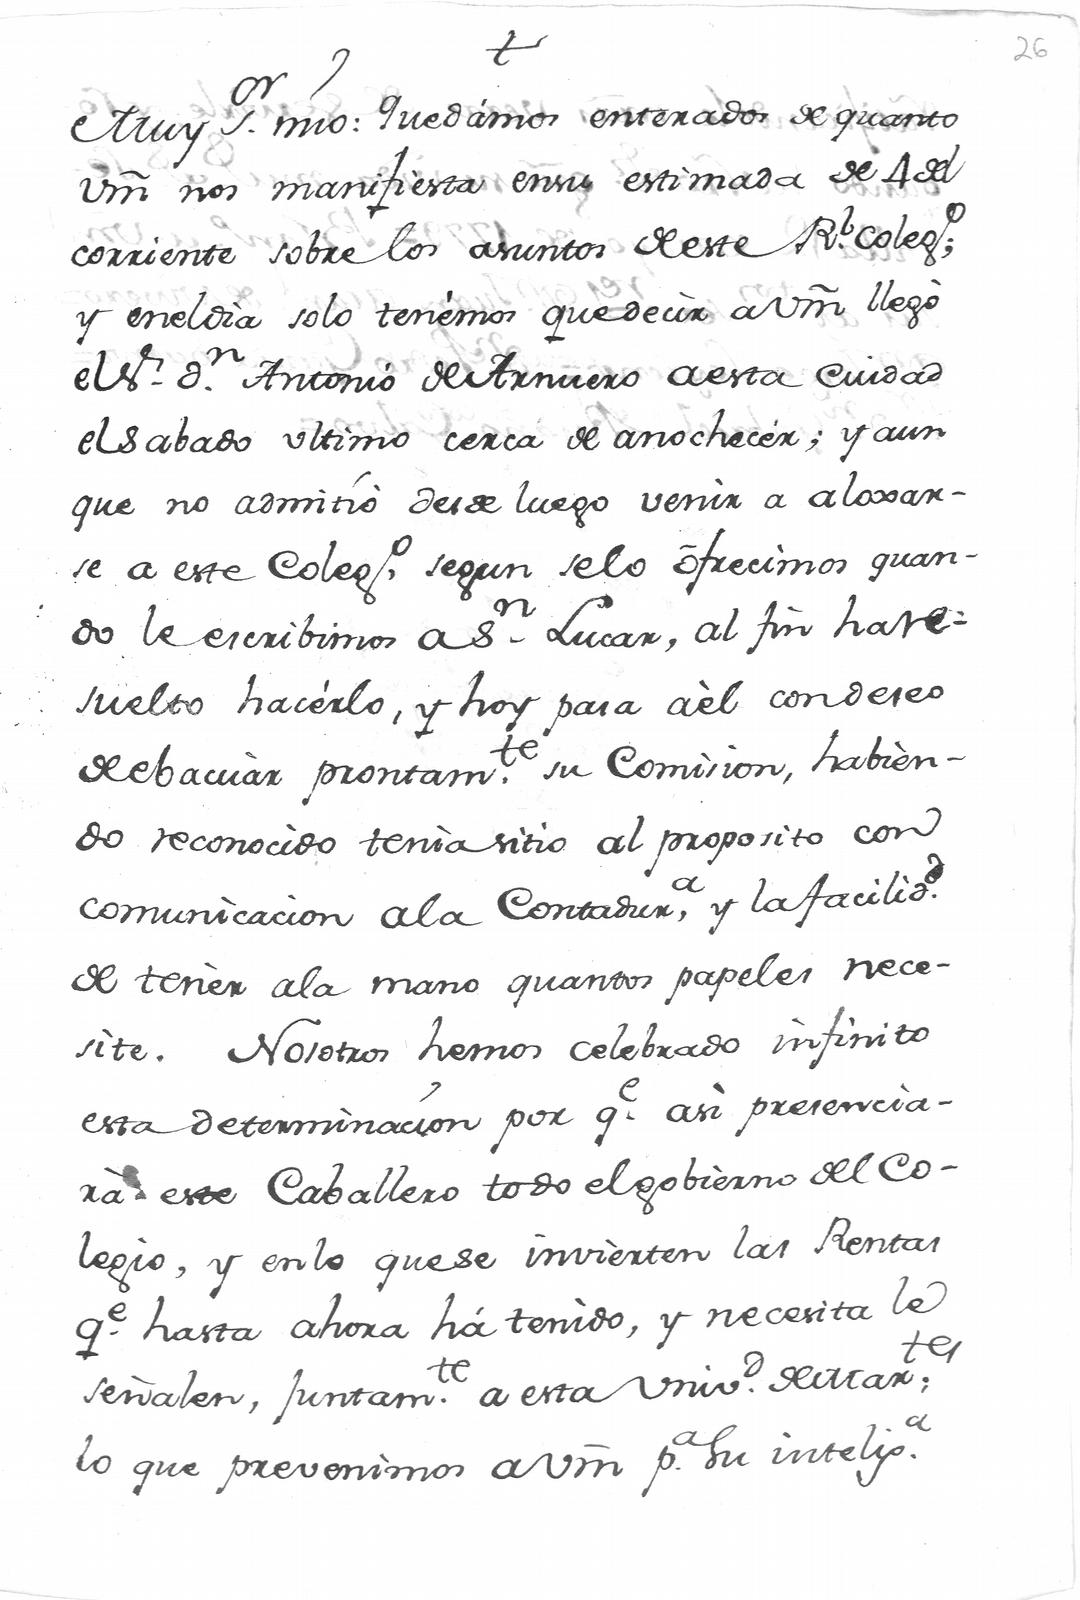 t
26
Muy S.or mio: Quedámos enterados de quanto
Vm̃ nos manifiesta ensu estimada de 4 del
corriente sobre los asuntos deeste R.l Coleg.o;
y eneldìa solo tenémos quedecìr aVm̃ llegò
elS.r d.n Antonió deArnuero aesta Cuidad
elSabado ultimo cerca de anochecér; y aun
que no admitiò desde luego venìr a aloxar-
se a este Coleg.o segun selo õfrecimos quan-
do le escribimos a S.n Lucar, al fin hare-
suelto hacérlo, y hoy pasa aèl condeseo
deebacuàr prontam.te su Comìsion, habièn-
do reconocìdo tenìa sitio al proposito con
comunìcacion ala Contadur.a, y la facilid.d
de tenèr ala mano quantos papeles nece-
sìte. Nosotros hemos celebrado infinito
esta determìnacion por q.e asì presencia-
rà este Caballero todo elgobìerno del Co-
legio, y enlo quese invìerten las Rentas
q.e hasta ahora há tenìdo, y necesita le
señalen, juntam.te a esta Univ.d deMar.tes;
lo que prevenimos aVm̃ p.a su intelig.a